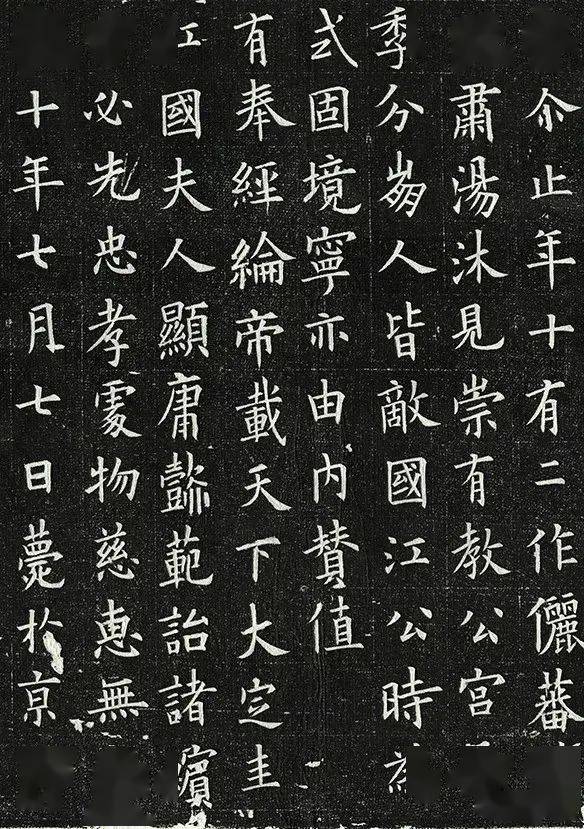 介止年十有二作儷蕃
肅湯沐見崇有教公宮
季分崩人皆敵國江公時
式固境寧亦由内賛值
有奉經綸帝載天下大定圭
國夫人顯庸懿範詒諸
必先忠孝處物慈惠無
十年七月七日薨於京